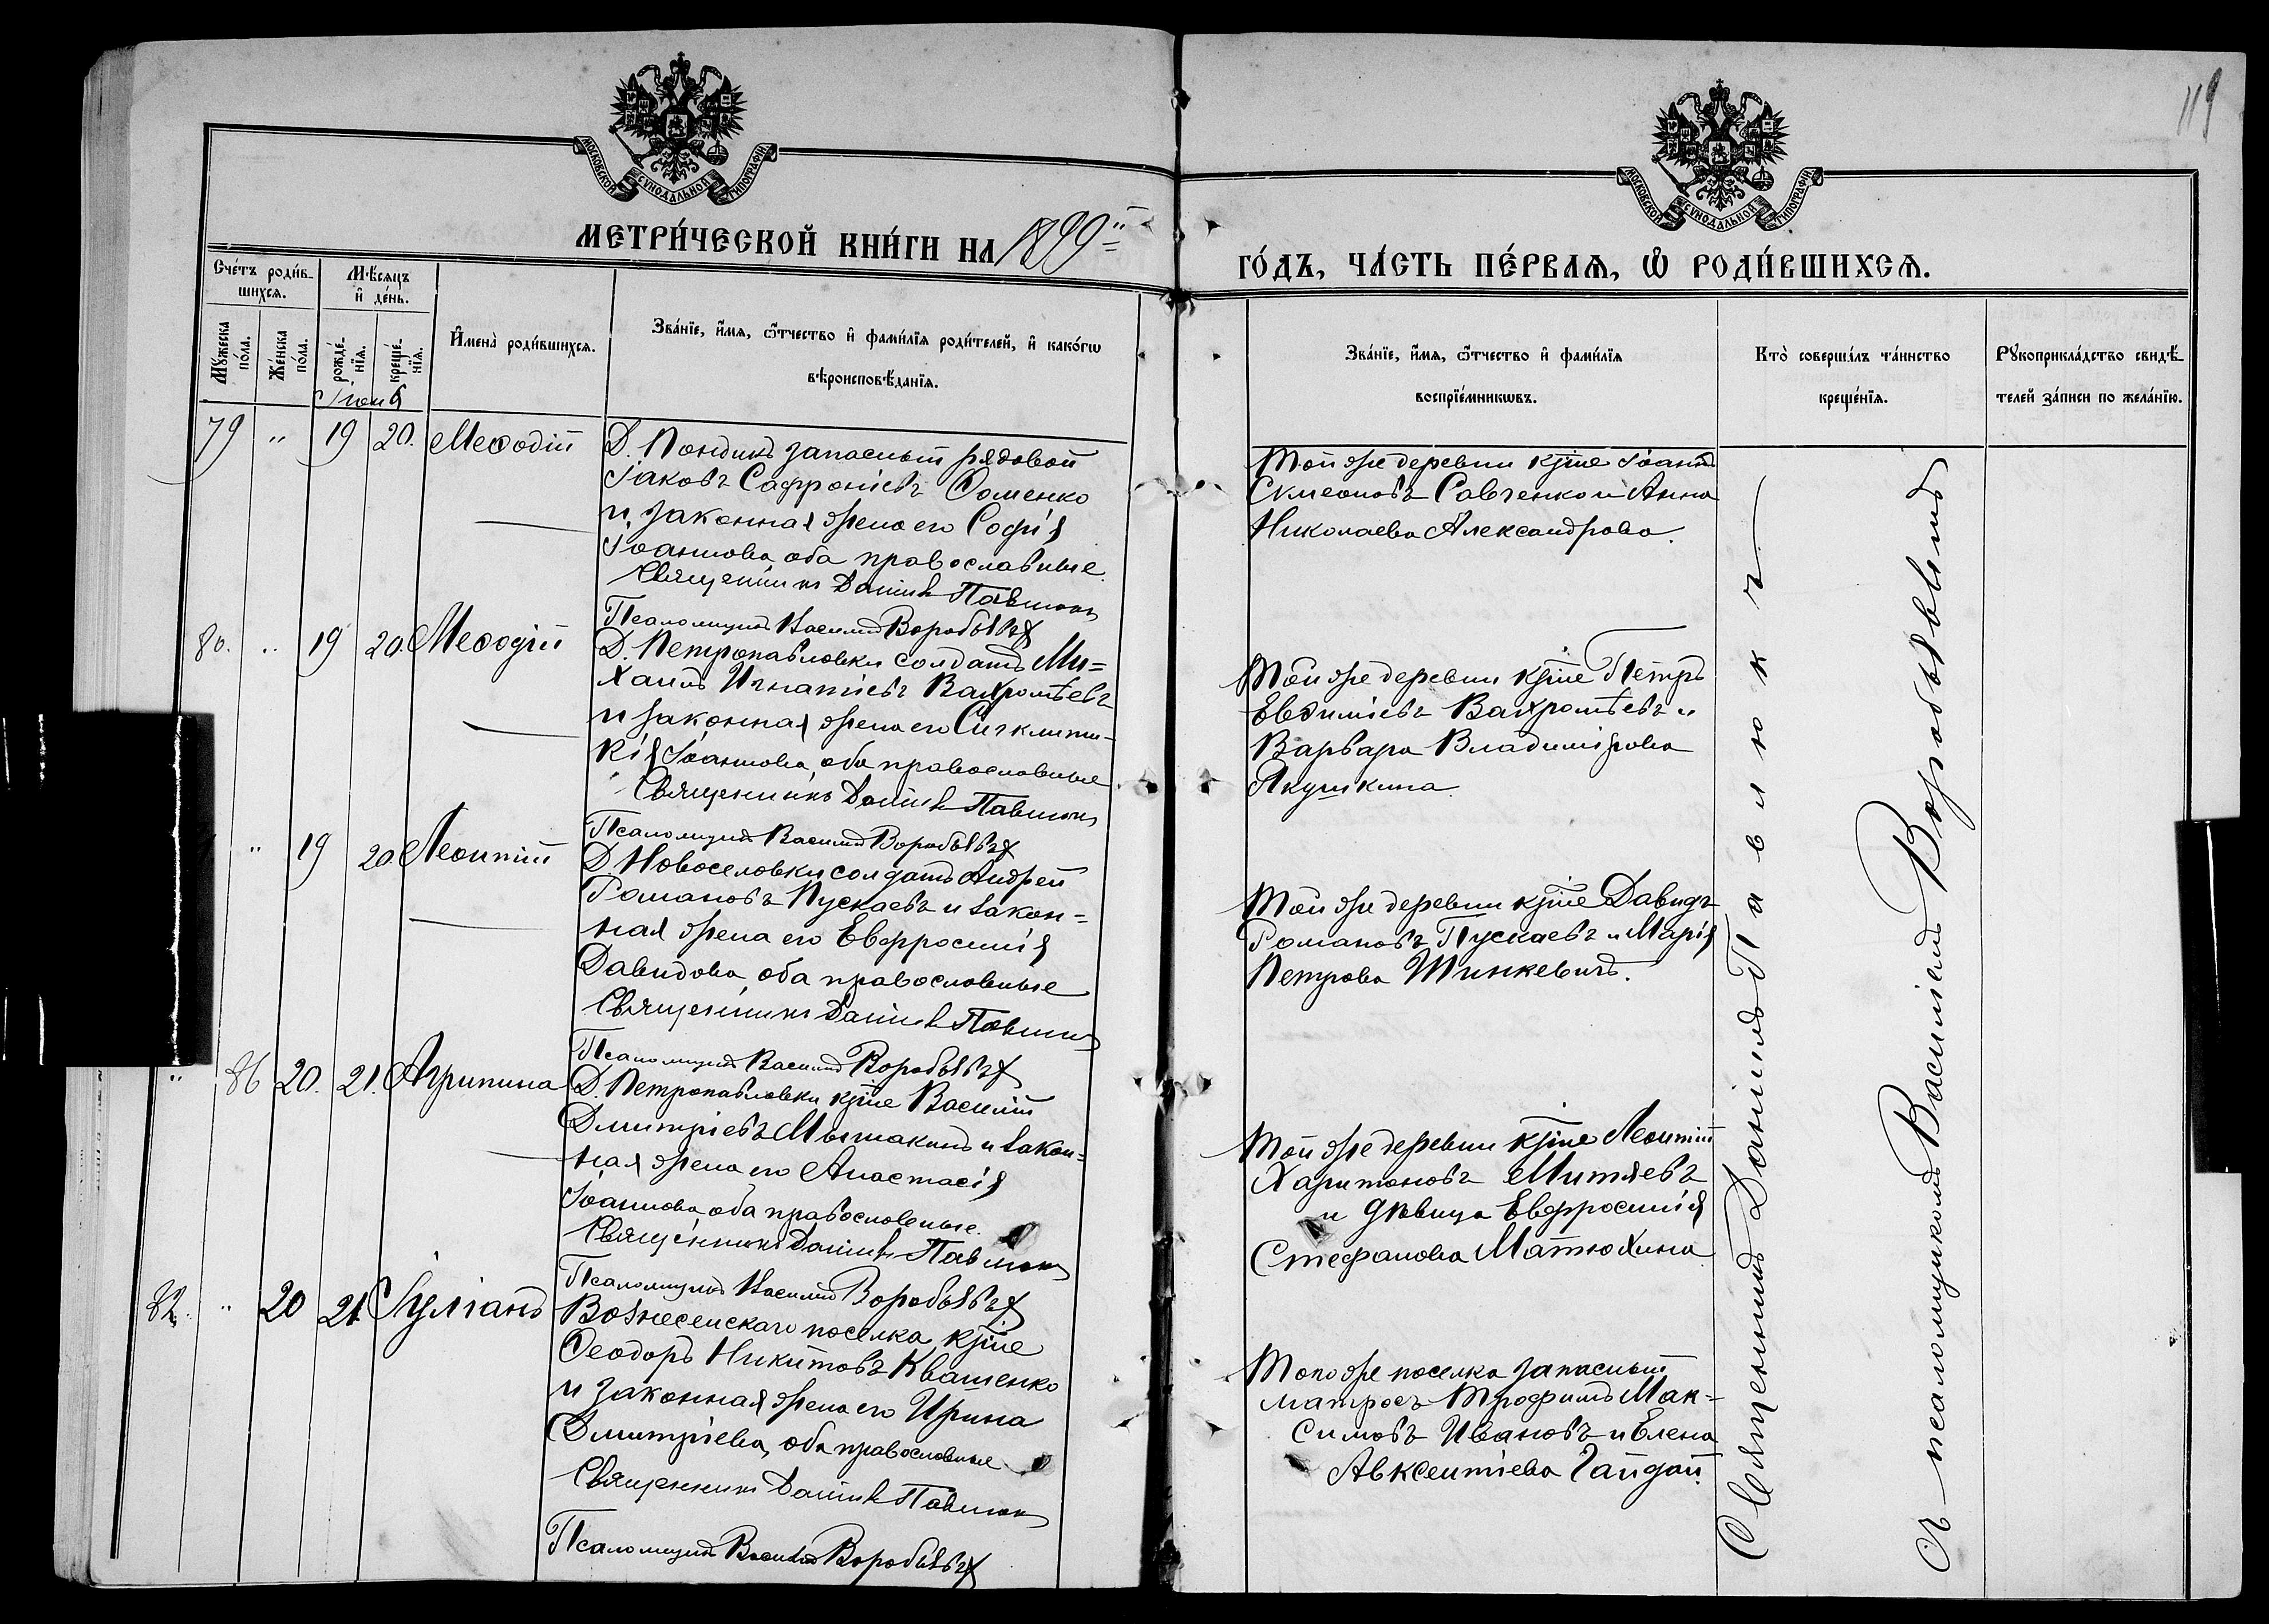 119
МОСКОВСКОЙ СУНОДАЛЬНОЙ ТИПОГРАФІИ
МОСКОВСКОЙ СУНОДАЛЬНОЙ ТИПОГРАФІИ
МЕТРИ́ЧЕСКОЙ КНИ́ГИ НА 1899й
ГО́ДЪ, ЧА́СТЬ ПЕ́РВАѦ, Ѡ РОДИ́ВШИХСѦ.
Сче́тъ роди́в-
шихсѧ.
Мꙋ́жеска
по́ла.
Же́нска
по́ла.
Мѣ́сѧцъ
и҆ де́нь.
рожде́-
нїѧ.
креще́-
нїѧ.
И҆мена̀ роди́вшихсѧ.
Зва́нїе, и҆́мѧ, ѻ҆́тчество и҆ фами́лїѧ роди́телей, и҆ како́гѡ
вѣроисповѣ́данїѧ.
Зва́нїе, и҆́мѧ, ѻ҆́тчество и҆ фами́лїѧ
воспрїе́мникѡвъ.
Кто̀ соверша́лъ та́инство
креще́нїѧ.
Рꙋкоприкла́дство свидѣ́-
телей за́писи по жела́нїю.
Іюня
79 " 19 20. Меѳодій
Д. Пондикъ запасный рядовой
Іаковъ Сафроніевъ Ѳоменко
и законная жена его Софія
Іоаннова, оба православные.
Священникъ Даніилъ Павлюкъ
Псаломщикъ Василій Воробьевъ
Той же деревни кр-не Іоаннъ
Симеоновъ Савченко и Анна
Николаева Александрова.
80. " 19 20. Меѳодій
Д. Петропавловки солдатъ Ми=
хаилъ Игнатіевъ Вахромѣевъ
и законная жена его Синклити-
кія Іоаннова, оба православные
Священникъ Даніилъ Павлюкъ
Псаломщикъ Василій Воробьевъ
Той же деревни кр-не Петръ
Евѳиміевъ Вахромѣевъ и
Варвара Владимірова
Якушкина.
" 19 20 Леонтій
Д. Новоселовки солдатъ Андрей
Романовъ Пускаевъ и закон=
ная жена его Евфросинія
Давидова, оба православные
Священникъ Даніилъ Павлюкъ
Псаломщикъ Василій Воробьевъ
Той же деревни кр-не Давидъ
Романовъ Пускаевъ и Марія
Петрова Шинкевичъ.
" 86 20. 21. Агрипина
Д. Петропавловки кр-не Василій
Димитріевъ Мышакинъ и закон=
ная жена его Анастасія
Іоаннова, оба православные.
Священникъ Даніилъ Павлюкъ
Псаломщикъ Василій Воробьевъ
Той же деревни кр-не Леонтій
Харитоновъ Митяевъ
и дѣвица Евфросинія
Стефанова Матюхина
82. " 20 21 Іуліанъ
Вознесенскаго поселка кр-не
Ѳеодоръ Никитовъ Квашенко
и законная жена его Ирина
Димитріева, оба православные
Священникъ Даніилъ Павлюкъ
Псаломщикъ Василій Воробьевъ
Того же поселка запасный
матросъ Трофимъ Мак-
симовъ Ивановъ и Елена
Авксентіева Гайдай.
Священникъ Даніилъ Павлюкъ
съ псаломщикомъ Василіемъ Воробьевымъ